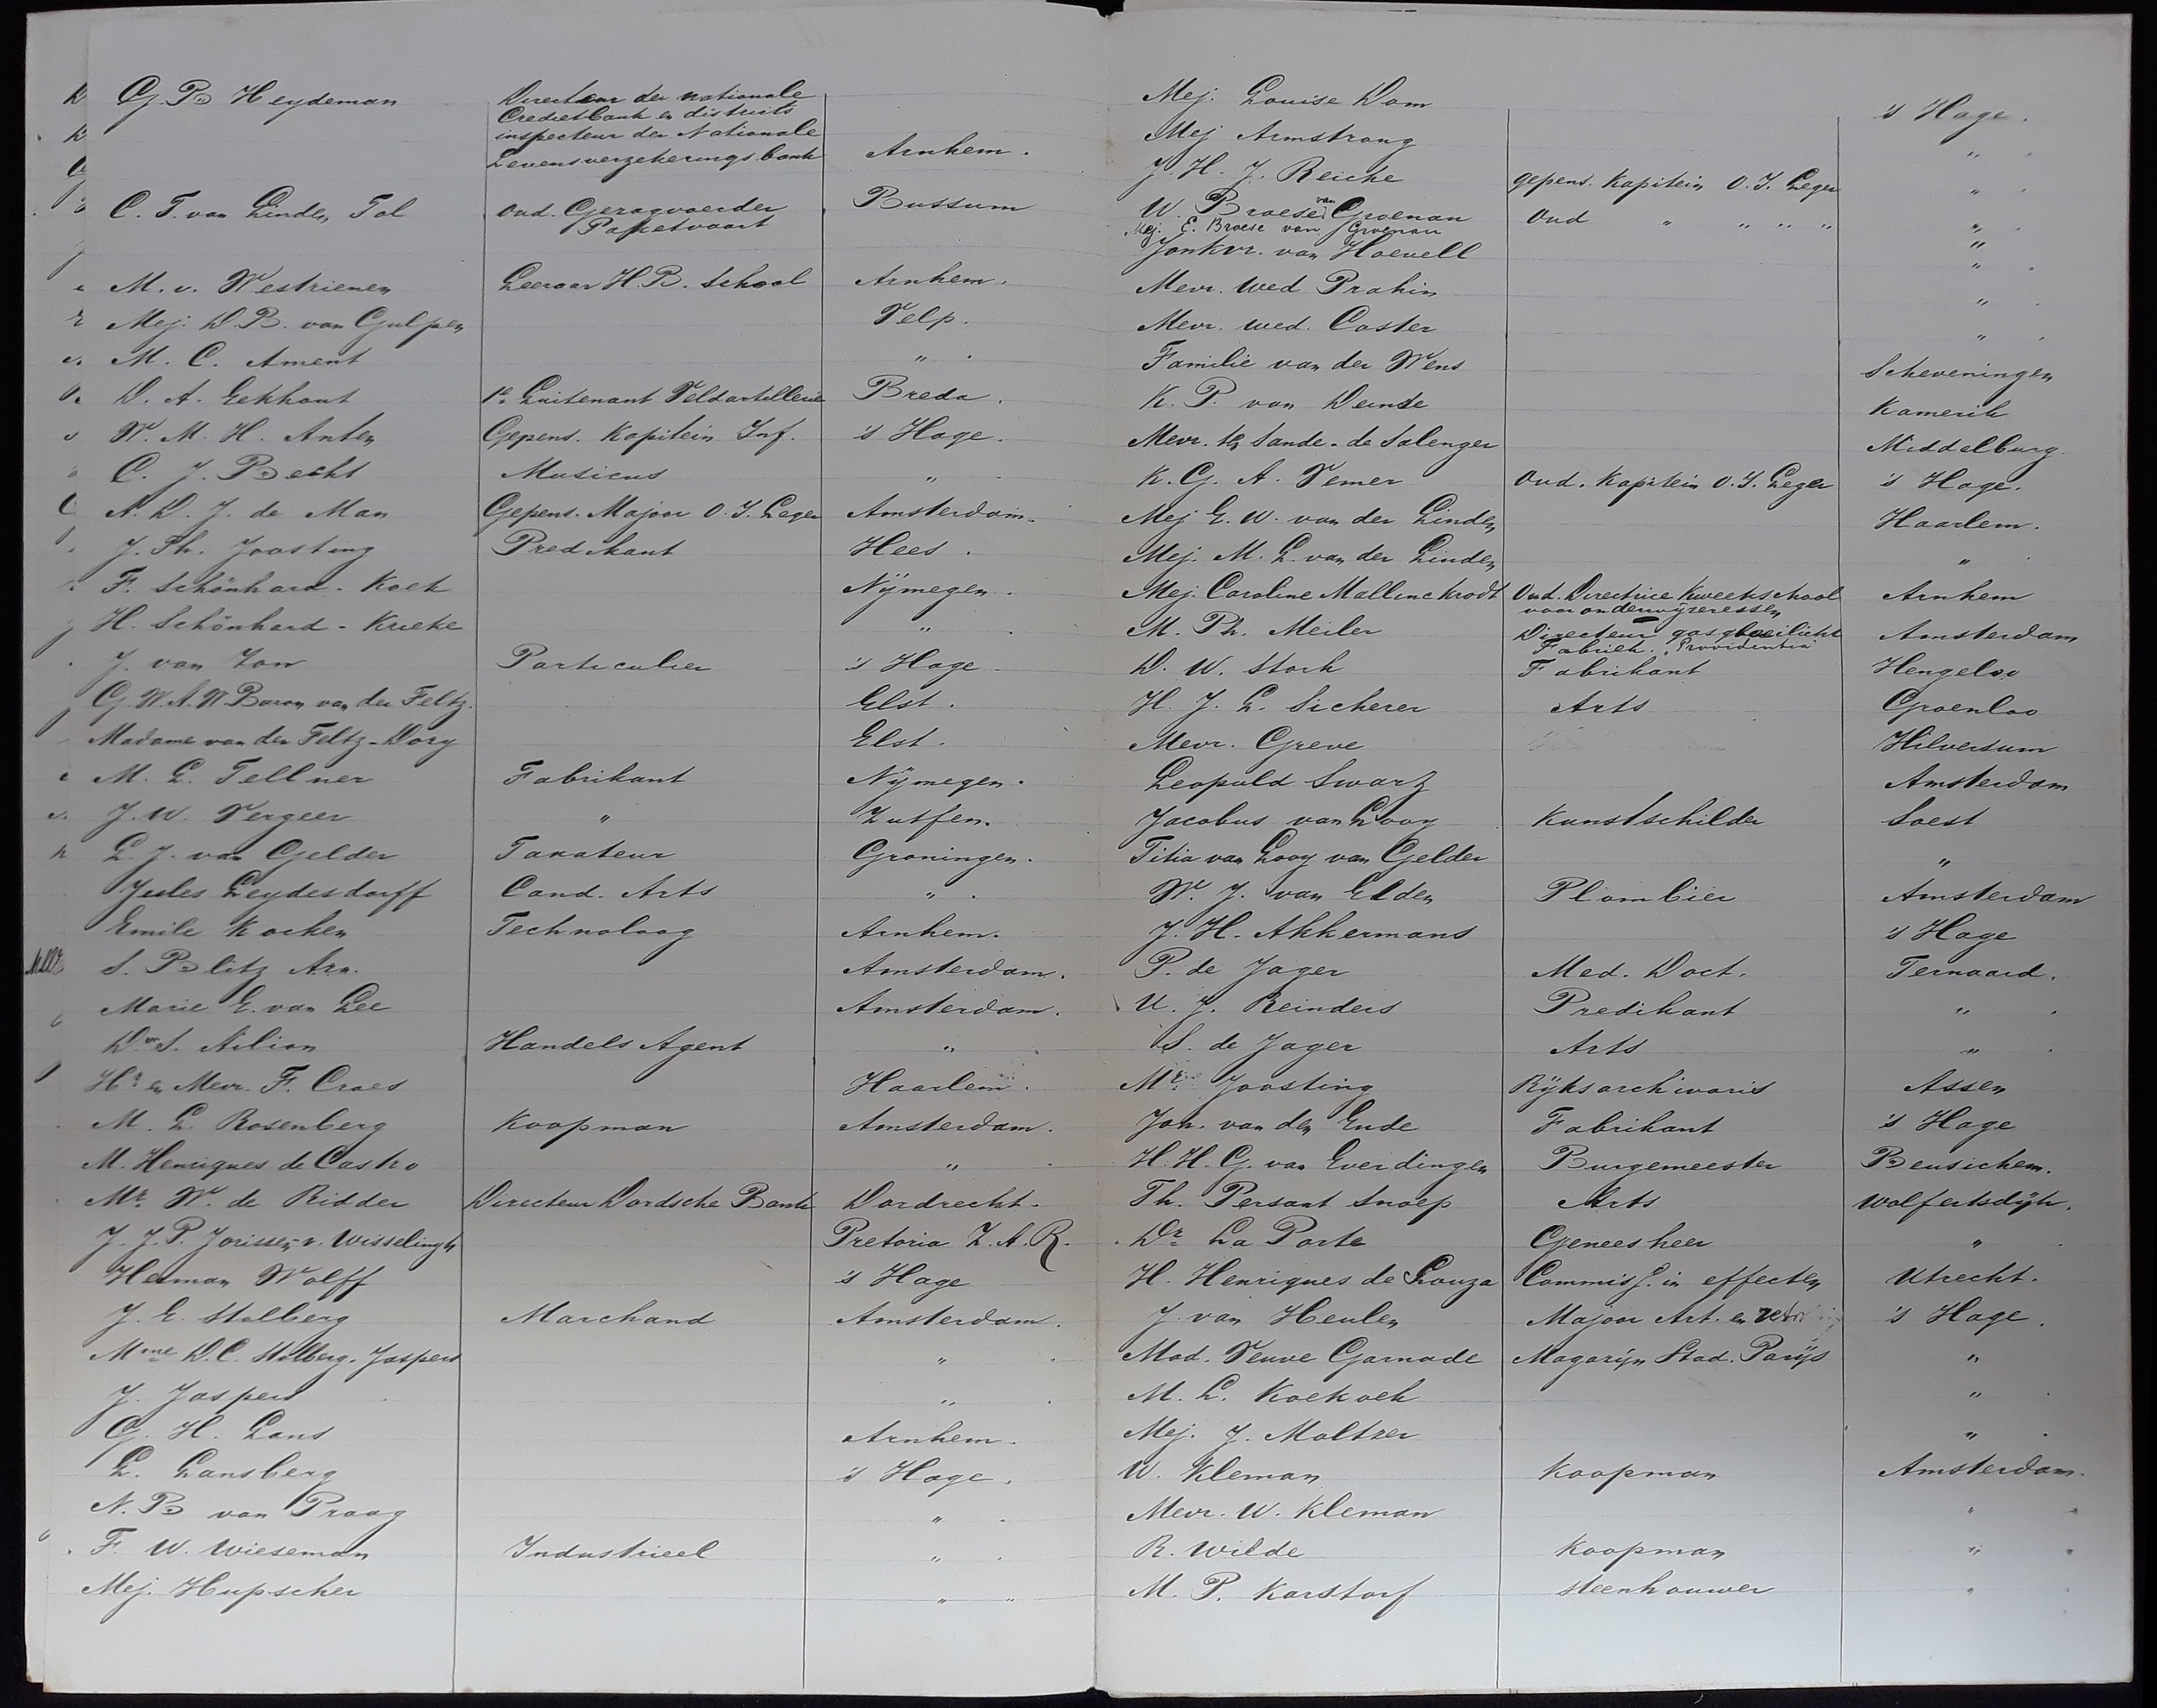 G. B. Heydeman Directeur der nationale
Credietbank en districts
inspecteur der Nationale
Levensverzekerings bank Arnhem.
C. T. van Linden Tol Oud. Gezagvoerder Bussum
Paketvaart
M. v. Westrienen Leeraar H. B. School Arnhem.
Mej. D. B. van Gulpen Velp.
M. C. Ament " .
D. A. Eekhout 1e Luitenant Veldartillerie Breda.
W. M. H. Anten Gepens. Kapitein Inf. 's Hage.
C. J. Becht Musicus " .
A. D. J. de Man Gepens. Majoor O. I. Leger Amsterdam.
J. Ph. Joosting Predikant Hees.
F. Schönhard - Kock Nijmegen.
H. Schönhard - Krieke " .
J. van Zon Particulier 's Hage.
G. W. A. W. Baron van der Feltz. Elst.
Madame van der Feltz - Dory Elst.
M. L. Tellner Fabrikant Nijmegen.
J. W. Vergeer " Zutfen.
L. J. van Gelder Taxateur Groningen.
Jules Leydesdorff Cand. Arts " .
Emile Kocken Technoloog Arnhem.
S. Blitz Azn. Amsterdam.
Marie E. van Lee Amsterdam.
S. Ailion Handels Agent "
Hr. en Mevr. F. Craes Haarlem.
M. L. Rosenberg Koopman Amsterdam.
M. Henriques de Castro " .
Mr. W. de Ridder Directeur Dordsche Bank Dordrecht.
J. J. P. Jorissen v. Wisselingh Pretoria Z. A. R.
Herman Wolff 's Hage
J. E. Stolberg Marchand Amsterdam.
Mme D. C. Stolberg. Jaspers " .
J. Jaspers " .
G. H. Lans Arnhem.
L. Lansberg 's Hage.
N. B van Praag " .
F. W. Wieseman Industrieel " .
Mej. Hupscher " "
Mej. Louise Dom 's Hage.
Mej Armstrong " .
J. H. J. Reiche gepens. Kapitein O. I. Leger " .
W. Broese van Groenou Oud " " " " " .
Mej. E. Broese van Groenou "
Jonkvr. van Hoevell " .
Mevr. Wed Prahin " .
Mevr. wed. Coster " .
Familie van der Wens Scheveningen
K. P. van Deinse Kamerik
Mevr. Sande - de Salenger Middelburg.
K. G. A. Vemer Oud. Kapitein O. I. Leger 's Hage.
Mej E. W. van der Linden Haarlem.
Mej. M. L. van der Linden " .
Mej. Caroline Mallinckrodt Oud. Directrice Kweekschool Arnhem
voor onderwijzeressen
M. Ph. Meiler Directeur gasgloeilicht Amsterdam
Fabriek. "Providentia"
D. W. Stork Fabrikant Hengeloo
H. J. L. Sicherer Arts Groenloo
Mevr. Greve Hilversum
Leopold Swarz Amsterdam
Jacobus van Looy Kunstschilder Soest
Titia van Looy van Gelder "
W. J. van Elden Plombier Amsterdam
J. H. Akkermans 's Hage
P. de Jager Med. Doct. Ternaard.
U. J. Reinders Predikant " .
S. de Jager Arts " .
Mr. Joosting Rijksarchivaris Assen
Joh. van den Ende Fabrikant 's Hage
H. H. G. van Everdingen Burgemeester Beusichem.
Th. Persant Snoep Arts Wolfertsdijk.
Dr. La Porte Geneesheer " .
H. Henriques de Souza Commiss. in effecten Utrecht.
J. van Heulen Majoor Art. en 's Hage.
Mad. Veuve Garnade Magazijn Stad. Parijs "
M. L. Koekoek " .
Mej. J. Moltzer " .
W. Kleman Koopman Amsterdam.
Mevr. W. Kleman " "
R. Wilde Koopman " "
M. P. Karstorf Steenhouwer " "